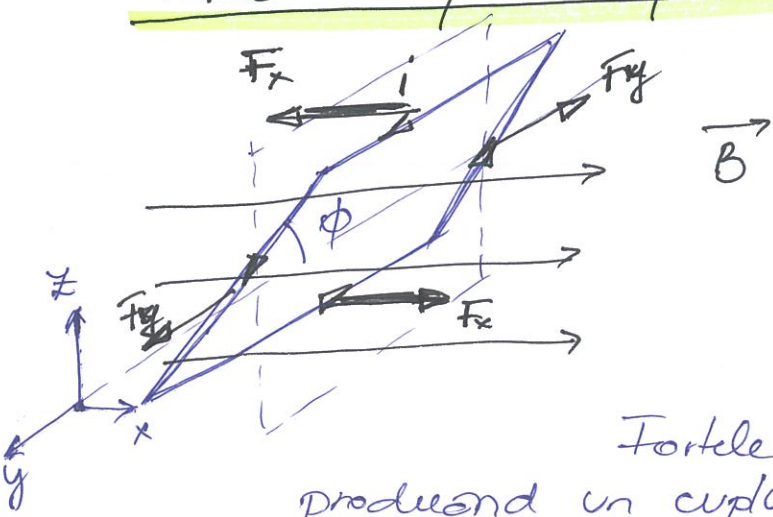 Fx
i
Fy
B
ϕ
z
Fy
Fx
x
y
Fortele
producand un cuplu